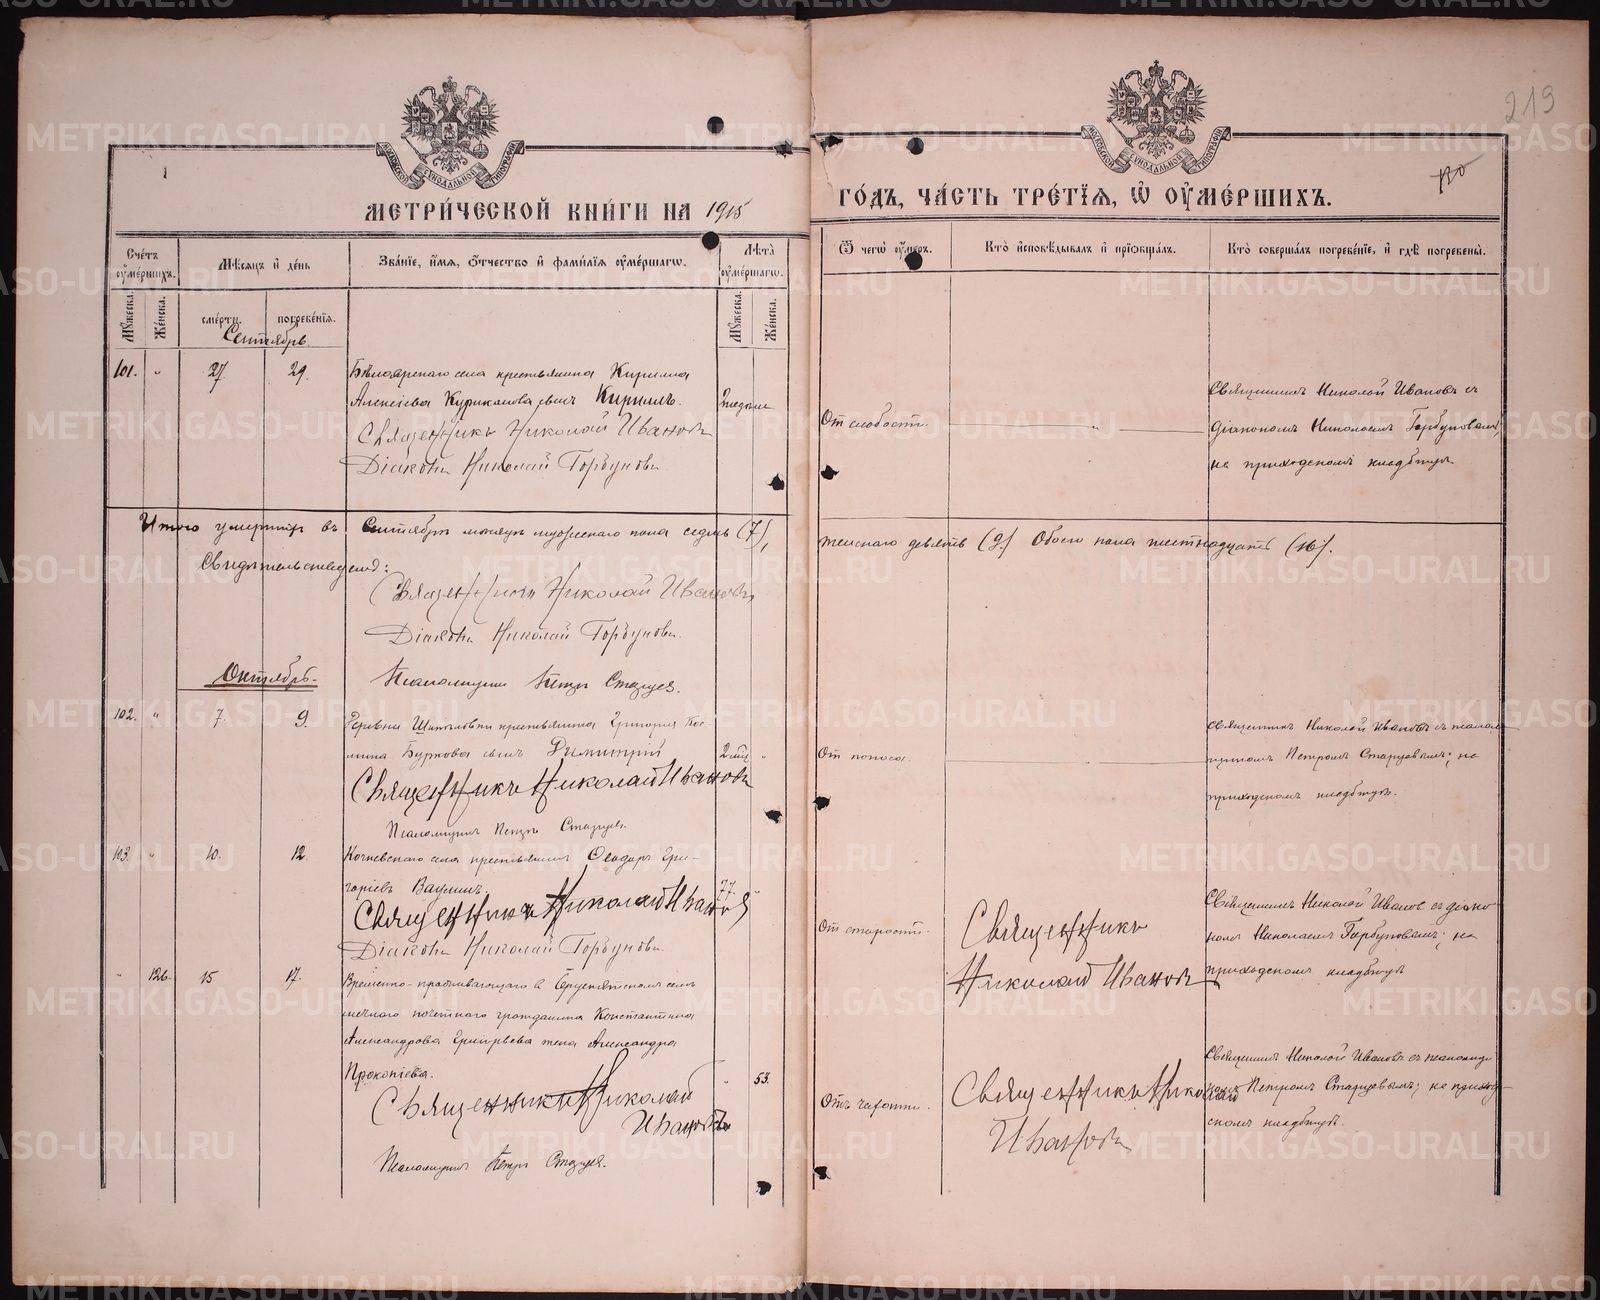 219
МЕТРИ́ЧЕСКОЙ КНИ́ГИ НА 1915
ГО́ДЪ, ЧА́СТЬ ТРЕ́ТЇѦ, Ѡ ОУМЕ́РШИХЪ.
МОСКОВСКОЙ СѴНОДАЛЬНОЙ ТИПОГРАФИИ
МОСКОВСКОЙ СѴНОДАЛЬНОЙ ТИПОГРАФИИ
Счетъ оумершихъ.
Мѣсяцъ и день
Званіе, имя, отчество и фамилія оумершагѡ.
Лѣта оумершагѡ.
Ѿ чегѡ оумеръ.
Кто исповѣдывалъ и пріобщалъ.
Кто совершалъ погребеніе, и гдѣ погребены.
Мужеска.
Женска.
смерти.
погребенія.
Мужеска.
Женска.
Сентябрь
101. " 27 29. Бѣлоярскаго села крестьянина Кирилла
Алексѣева сынъ Кириллъ.
Священникъ Николай Ивановъ
Діаконъ Николай Горбуновъ
От слабости.
Священникъ Николай Ивановъ с
діакономъ Николаемъ Горбуновымъ;
на приходскомъ кладбищѣ
Итого умершихъ въ Сентябрѣ мѣсяцѣ мужескаго пола седмь (7),
женскаго девять (9.) Обоего пола шестнадцать (16).
Свидѣтельствуемъ:
Священникъ Николай Ивановъ
Діаконъ Николай Горбуновъ.
Псаломщикъ Петръ Старцев.
Октябрь.
102. " 7. 9. Деревни крестьянина Григорія
Буркова сынъ Димитрій
2 мѣс "
Священникъ Николай Ивановъ
Псаломщикъ Петръ Старцев.
От поноса.
Священникъ Николай Ивановъ съ псалом
щикомъ Петромъ Старцевымъ; на
приходскомъ кладбищѣ.
103. " 10. 12. Кочневскаго села крестьянинъ Ѳеодоръ Гри-
горіевъ Ваулинъ.
77. "
Священникъ Николай Ивановъ
Діаконъ Николай Горбуновъ.
От старости.
Священникъ
Николай Ивановъ
Священникъ Николай Иванов съ діако
номъ Николаемъ Горбуновымъ; на
приходскомъ кладбищѣ
" 126. 15 17. Временно-проживающаго в Бруснятскомъ селѣ
личнаго почетнаго гражданина Константина
Александрова Григорьева жена Александра
Прокопіева.
" 53.
Священникъ Николай
Ивановъ
Псаломщикъ Петръ Старцев.
Отъ чахотки.
Священникъ Николай
Ивановъ
Священникъ Николай Ивановъ съ псаломщи
комъ Петромъ Старцевымъ; на приход
скомъ кладбищѣ.
METRIKI.GASO-URAL.RU